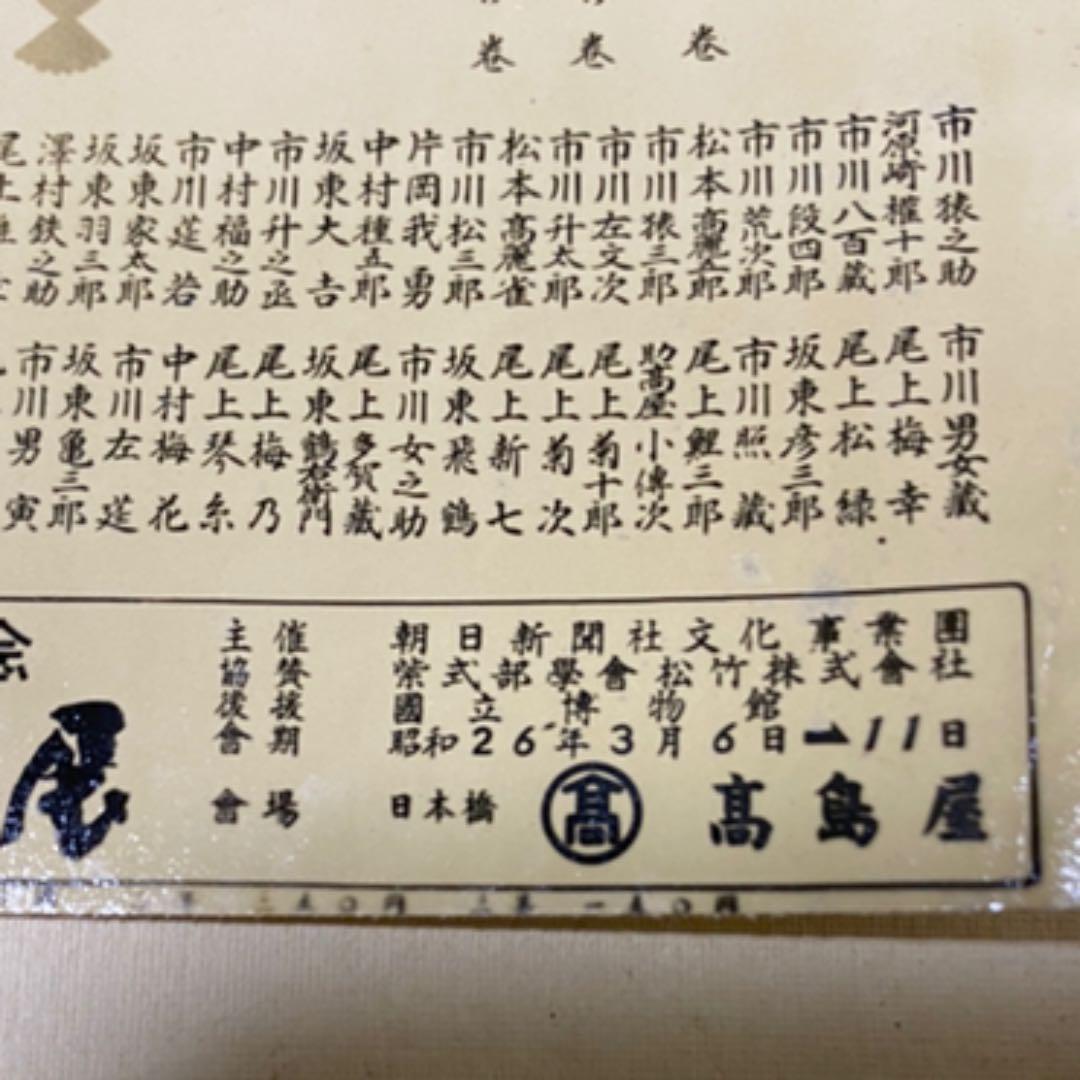 卷
卷
卷
市川猿之助
河原崎權十郎
市川八百藏
市川段四郎
市川荒次郎
松本高麗五郎
市川猿三郎
市川左文次
市川升太郎
松本高麗雀
市川松三郎
片岡我勇
中村種五郎
坂東大吉
市川升之丞
中村福之助
市川莚若
坂東家太郎
坂東羽三郎
澤村鉄之助
尾上
市川男女藏
尾上梅幸
尾上松緑
坂東彦三郎
市川照藏
尾上鯉三郎
助高屋小傳次
尾上菊十郎
尾上菊次
尾上新七
坂東飛鶴
市川女之助
尾上多賀藏
坂東鶴右衛門
尾上梅乃
尾上琴糸
中村梅花
市川左莚
坂東亀三郎
市川男寅
主催 朝日新聞社文化事業團
協賛 紫式部學會松竹株式會社
後援 國立博物館
會期 昭和26年3月6日ー11日
會場 日本橋 髙 髙島屋